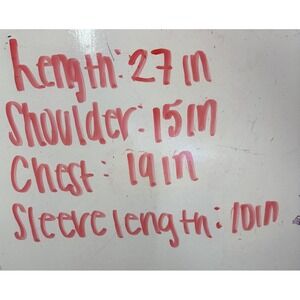 Length: 27in
Shoulder: 15in
Chest: 19in
Sleeve length: 10in